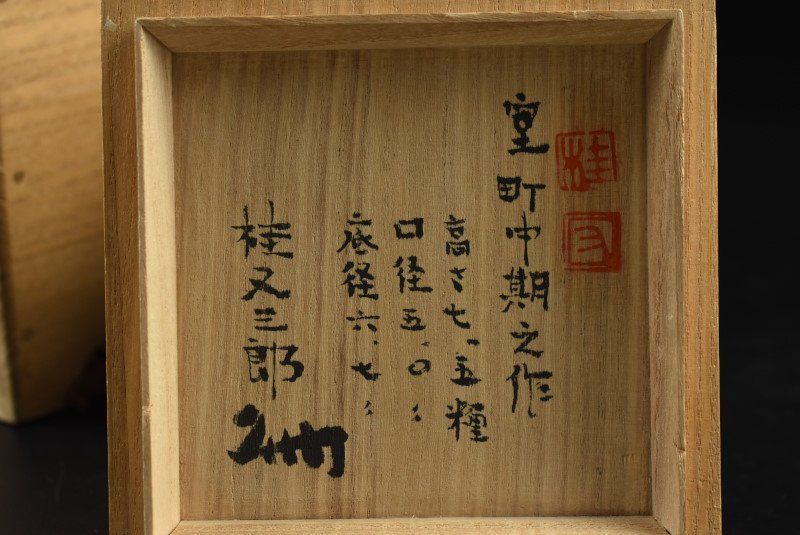 室町中期之作
高さ七、五糎
口径五、〇〃
底径六、七〃
桂又三郎
桂
又